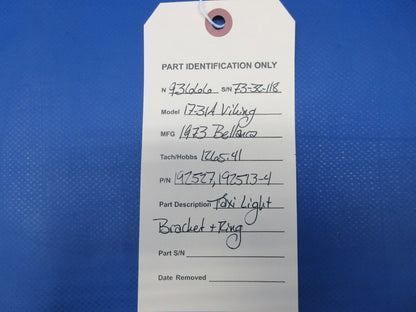 PART IDENTIFICATION ONLY
N 93666 S/N 73-32-118
Model 17-31A Viking
MFG 1973 Bellanca
Tach/Hobbs 1265.41
P/N 192527, 192573-4
Part Description Taxi Light
Bracket + Ring
Part S/N
Date Removed